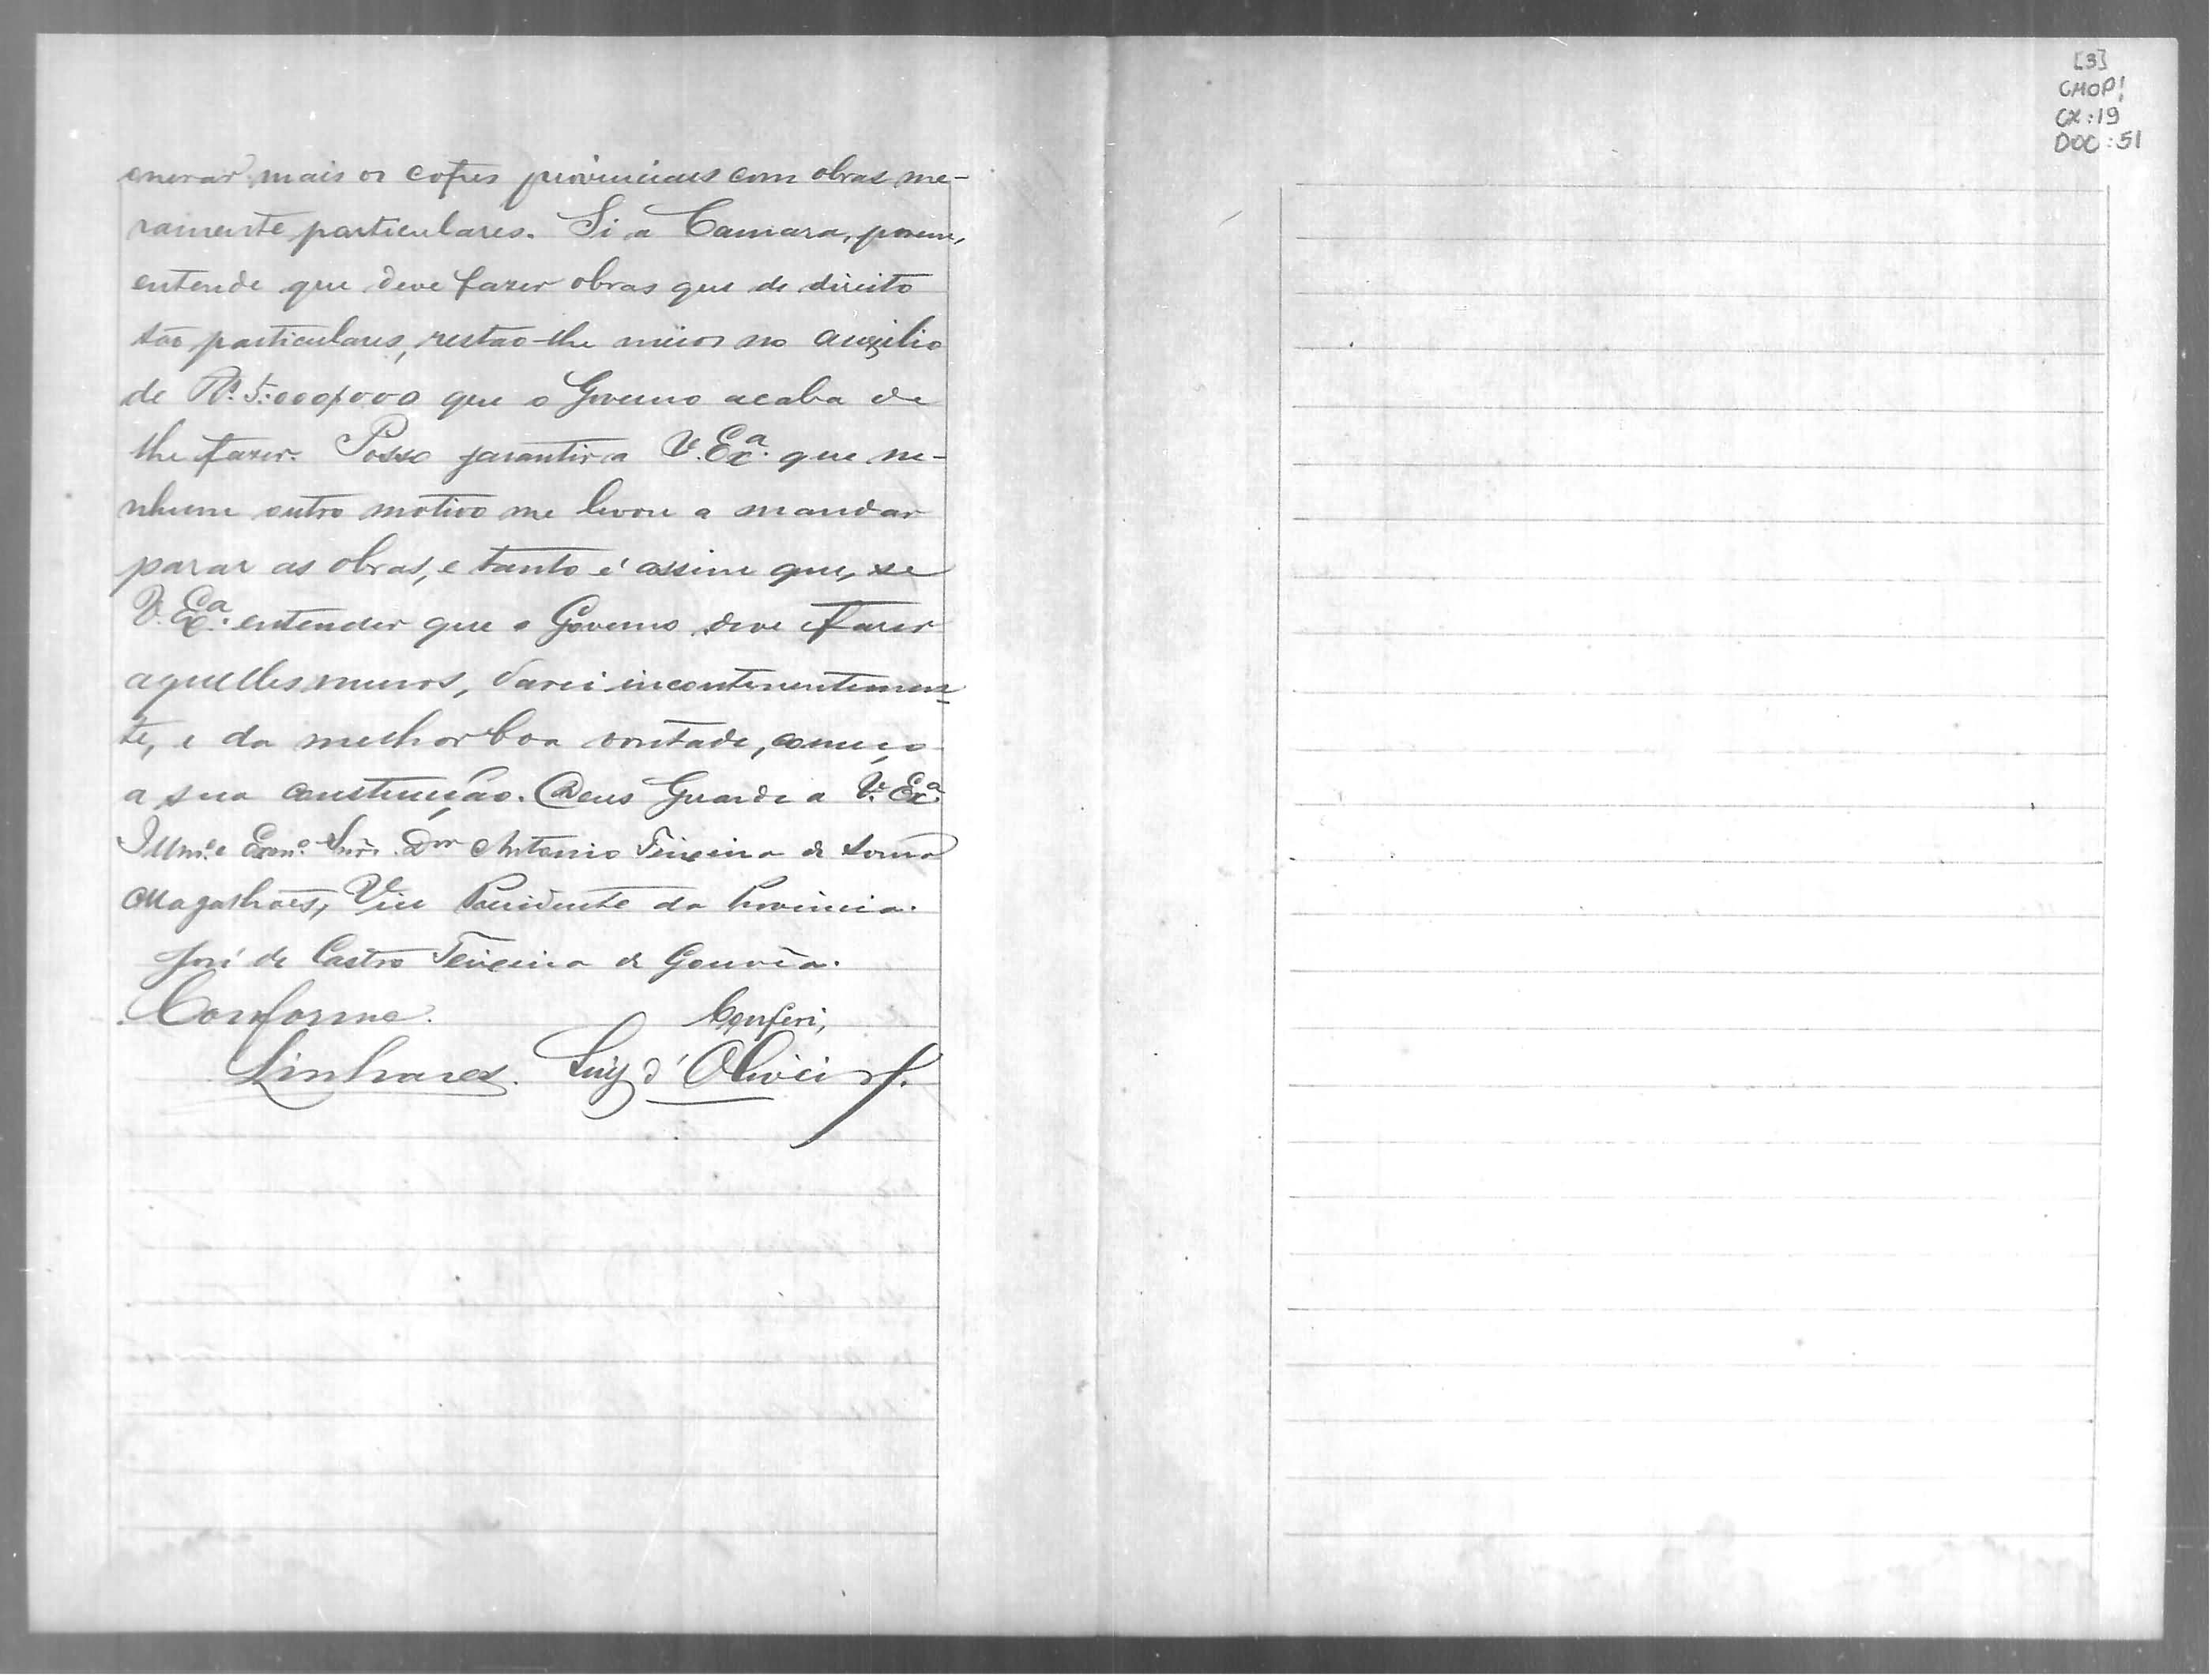 onerar mais os cofres provinciaes com obras me-
ramente particulares. Si a Camara, porem,
entende que deve fazer obras que de direito
são particulares, restão-lhe meios no auxilio
de Rs. 5:000$000 que o Governo acaba de
lhe fazer. Posso garantir a V. Exa. que ne-
nhum outro motivo me levou a mandar
parar as obras, e tanto é assim que, se
V. Exa. entender que o Governo deve fazer
aquelles muros, darei incontinentemen-
te, e da melhor boa vontade, começo
a sua construcção. Deus Guarde a V. Exa.
Illmo. e Exmo. Snr. Dor Antonio Teixeira de Souza
Magalhães, Vice Presidente da Provincia.
José de Castro Teixeira de Gouvêa.
Conforme. Conferi,
Linhares. Luiz d'Oliveira.
[3]
CMOP!
CX:19
DOC:51